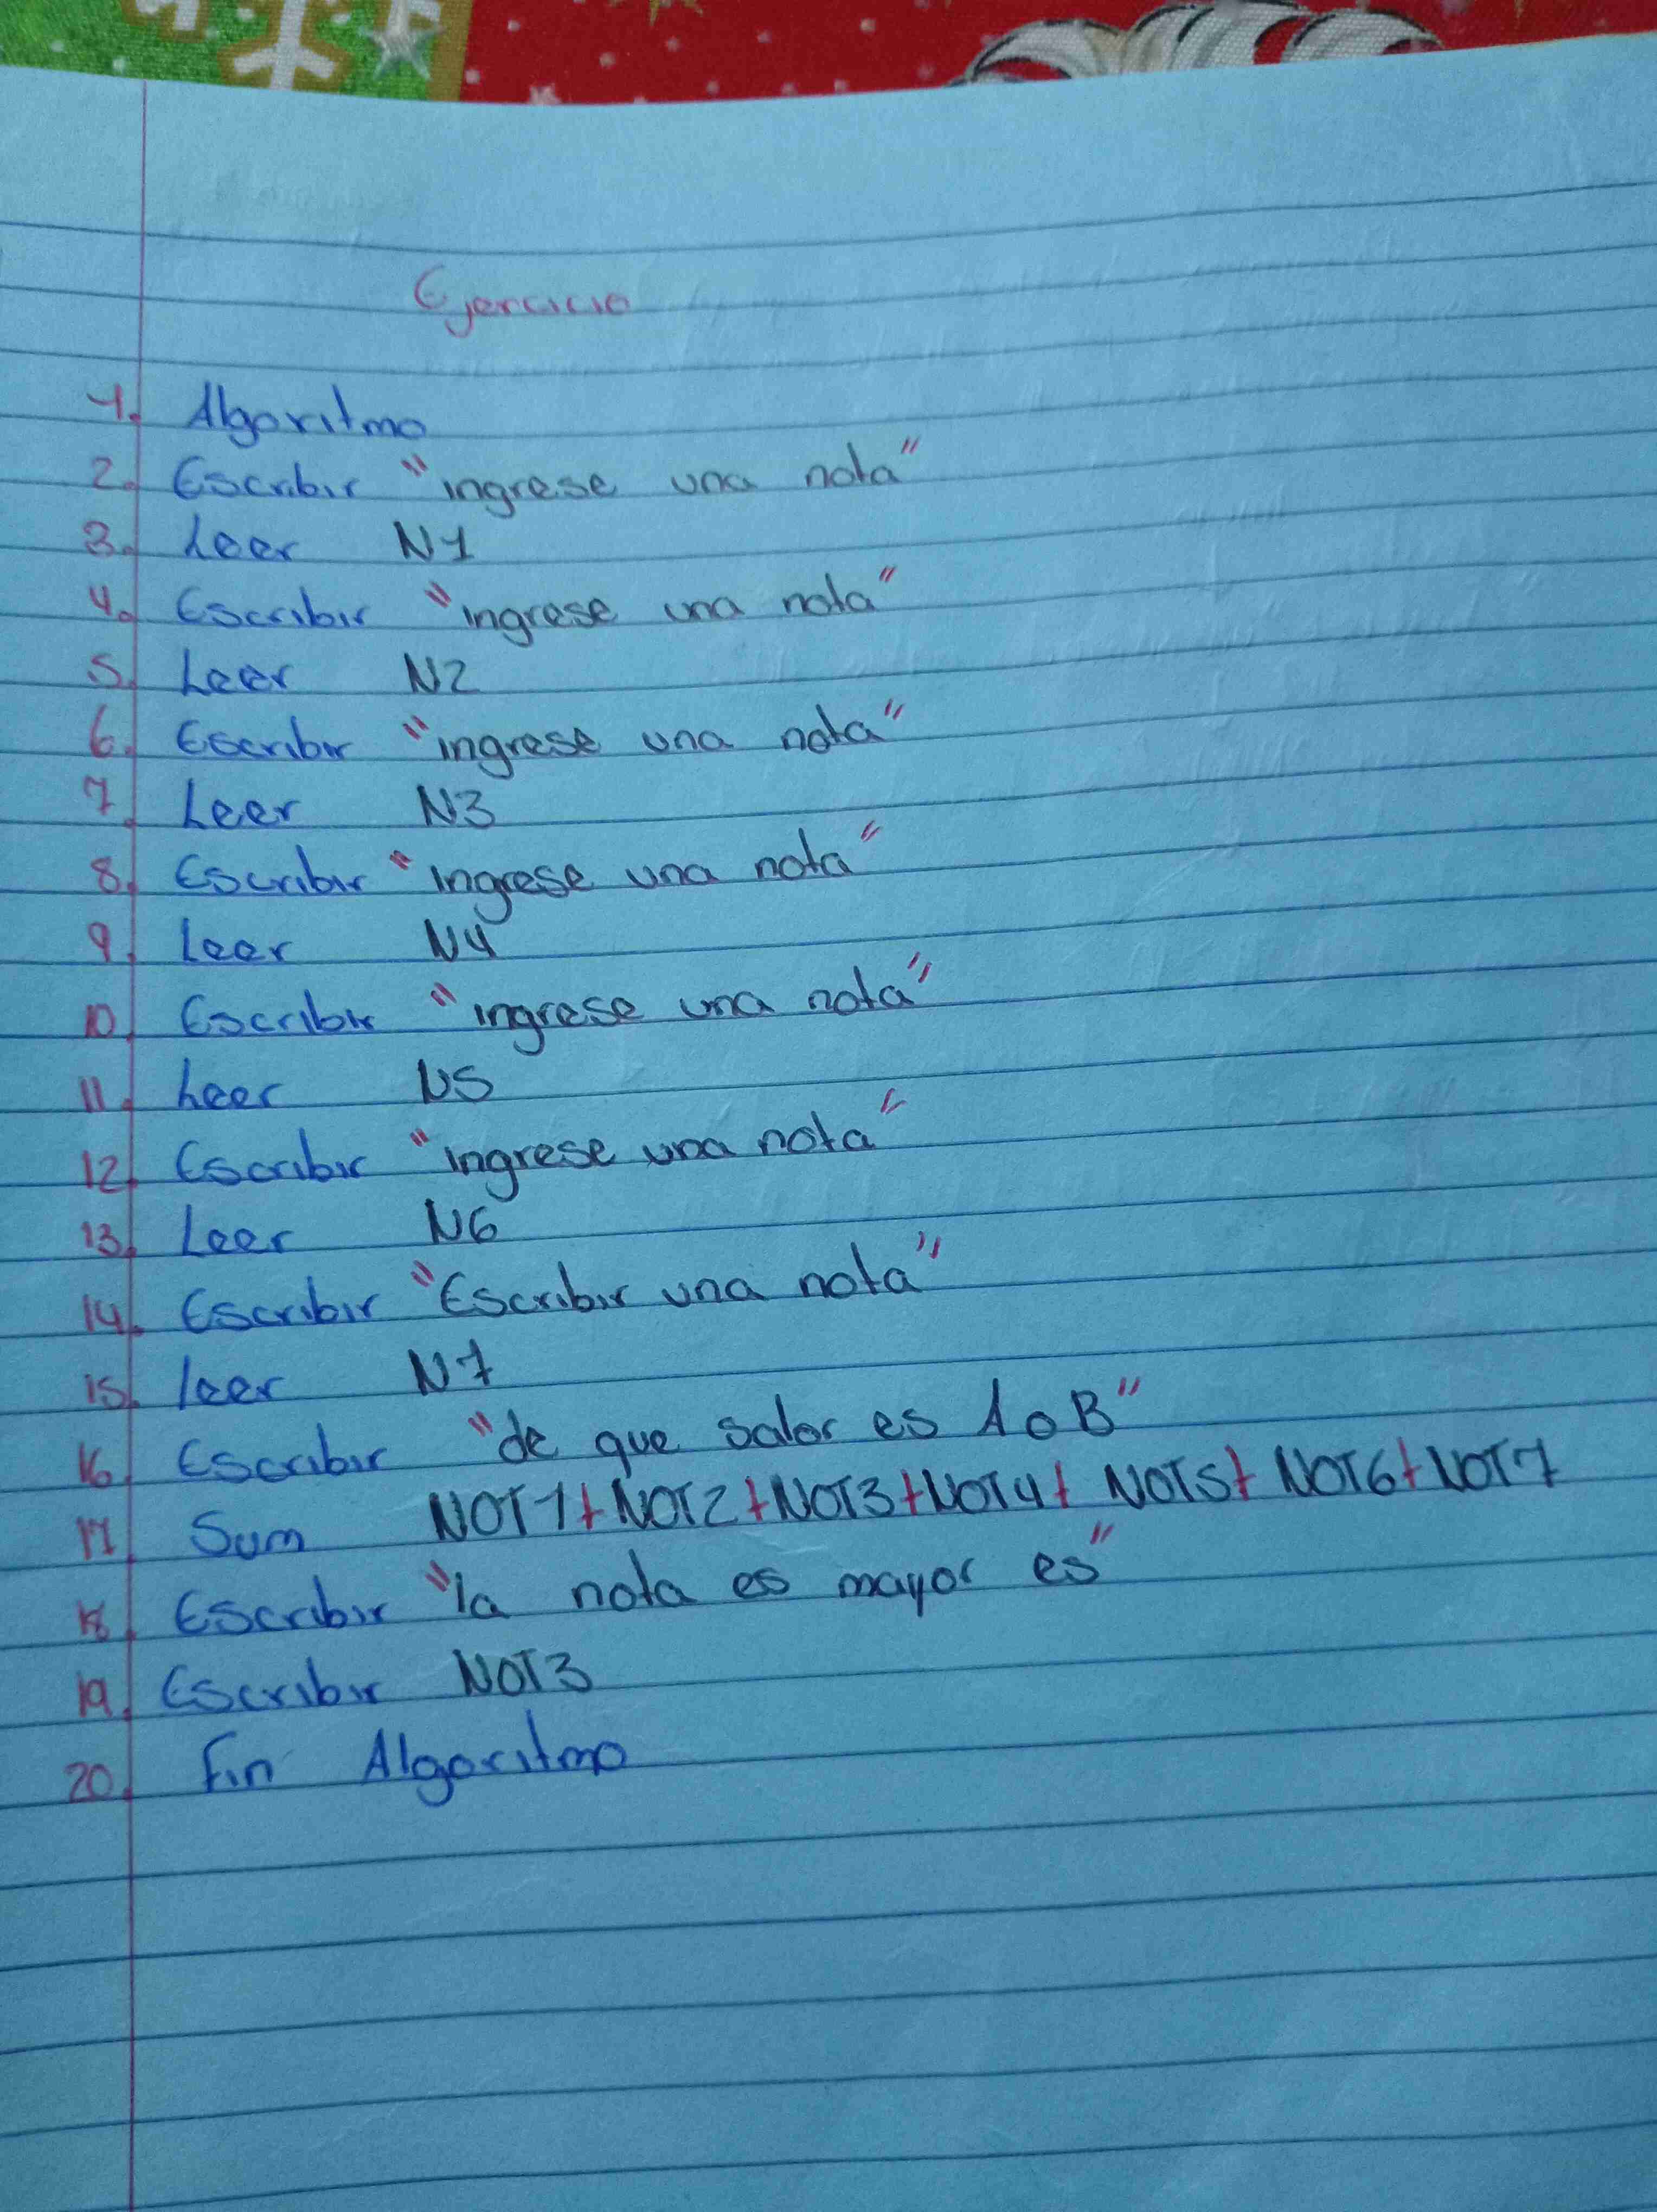 Ejercicio
1. Algoritmo
2. Escribir "ingrese una nota"
3. Leer N1
4. Escribir "ingrese una nota"
5. Leer N2
6. Escribir "ingrese una nota"
7. Leer N3
8. Escribir "ingrese una nota"
9. Leer N4
10. Escribir "ingrese una nota"
11. Leer N5
12. Escribir "ingrese una nota"
13. Leer N6
14. Escribir "Escribir una nota"
15. leer N7
16. Escribir "de que salor es A o B"
17. Sum NOT1+NOT2+NOT3+NOT4+ NOT5+ NOT6+NOT7
18. Escribir "la nota es mayor es"
19. Escribir NOT3
20. Fin Algoritmo